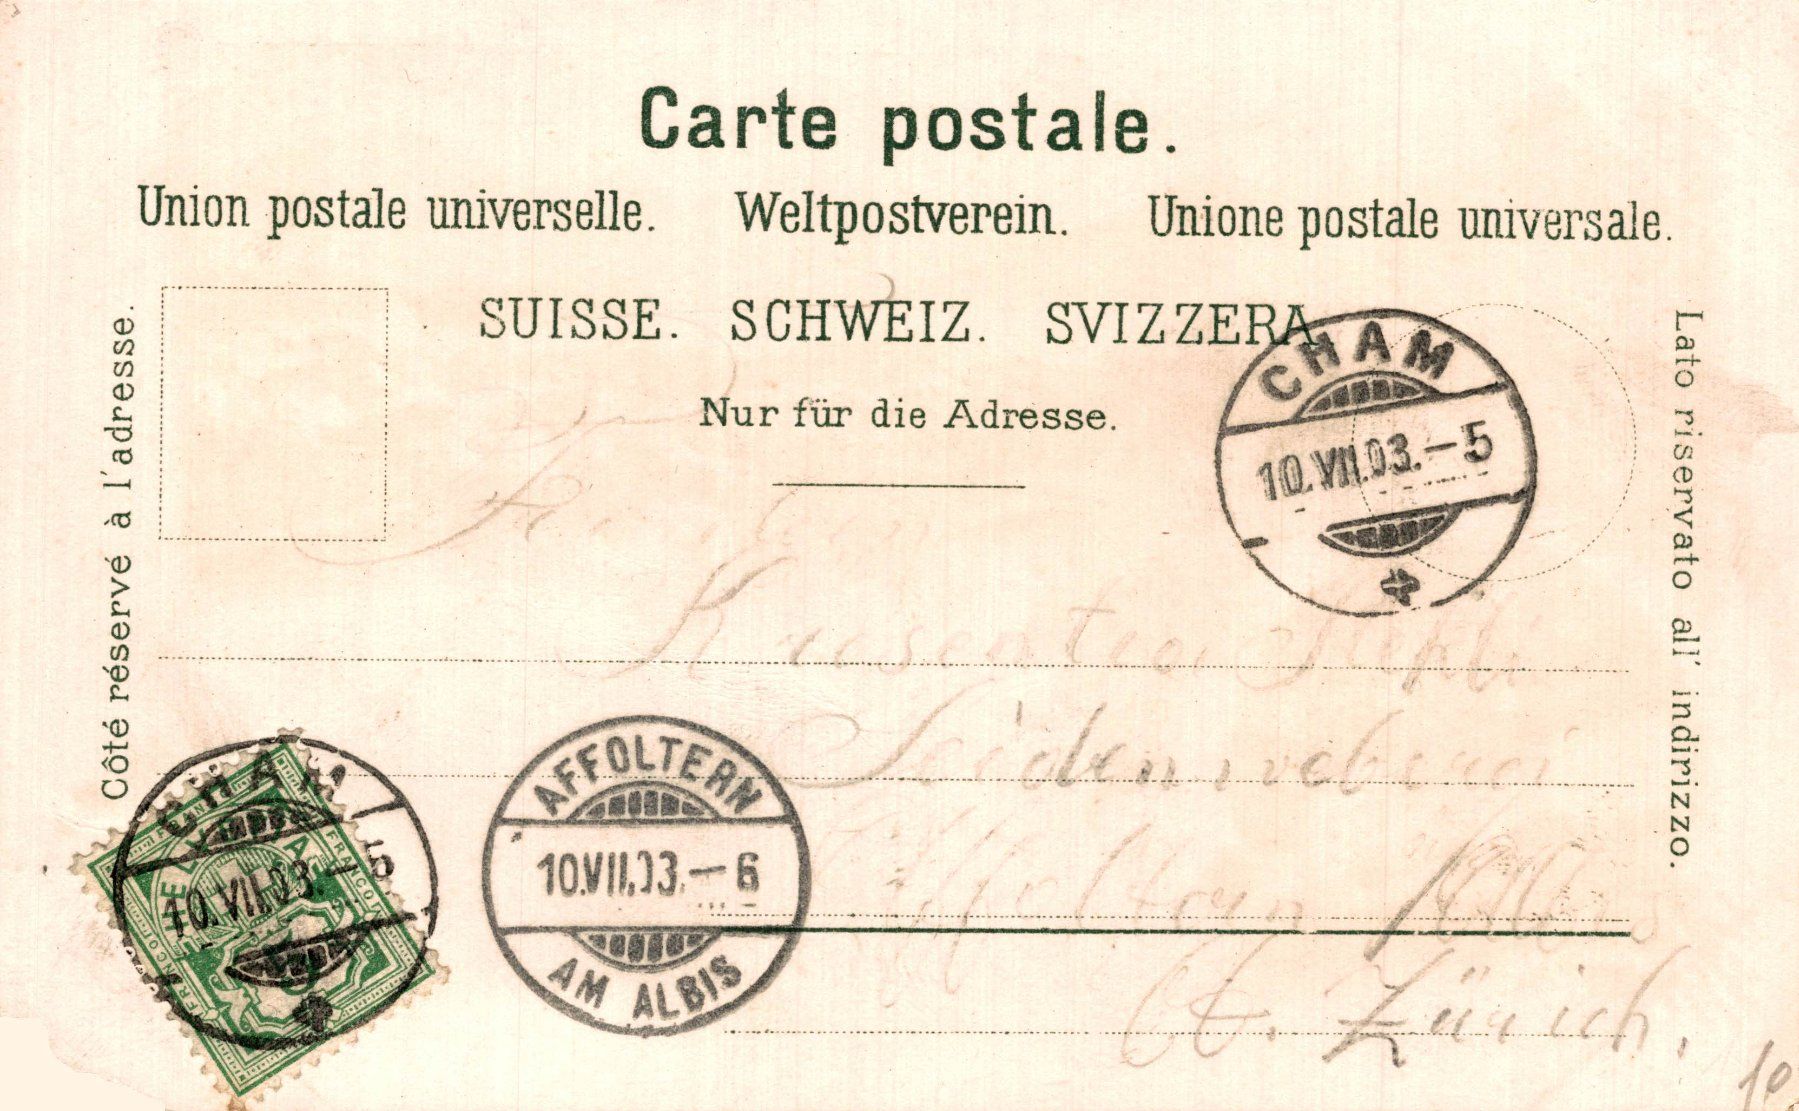 Carte postale.
Union postale universelle. Weltpostverein. Unione postale universale.
SUISSE. SCHWEIZ. SVIZZERA
Nur für die Adresse.
Côté réservé à l'adresse.
Lato riservato all' indirizzo.
CHAM
10.VII.03.–5
Seidenweberei
Affoltern Albis
Ct. Zürich.
CHAM
10.VII.03.–5
HELVETIA
FRANCO
FRANCO
AFFOLTERN
10.VII.03.–6
AM ALBIS
10